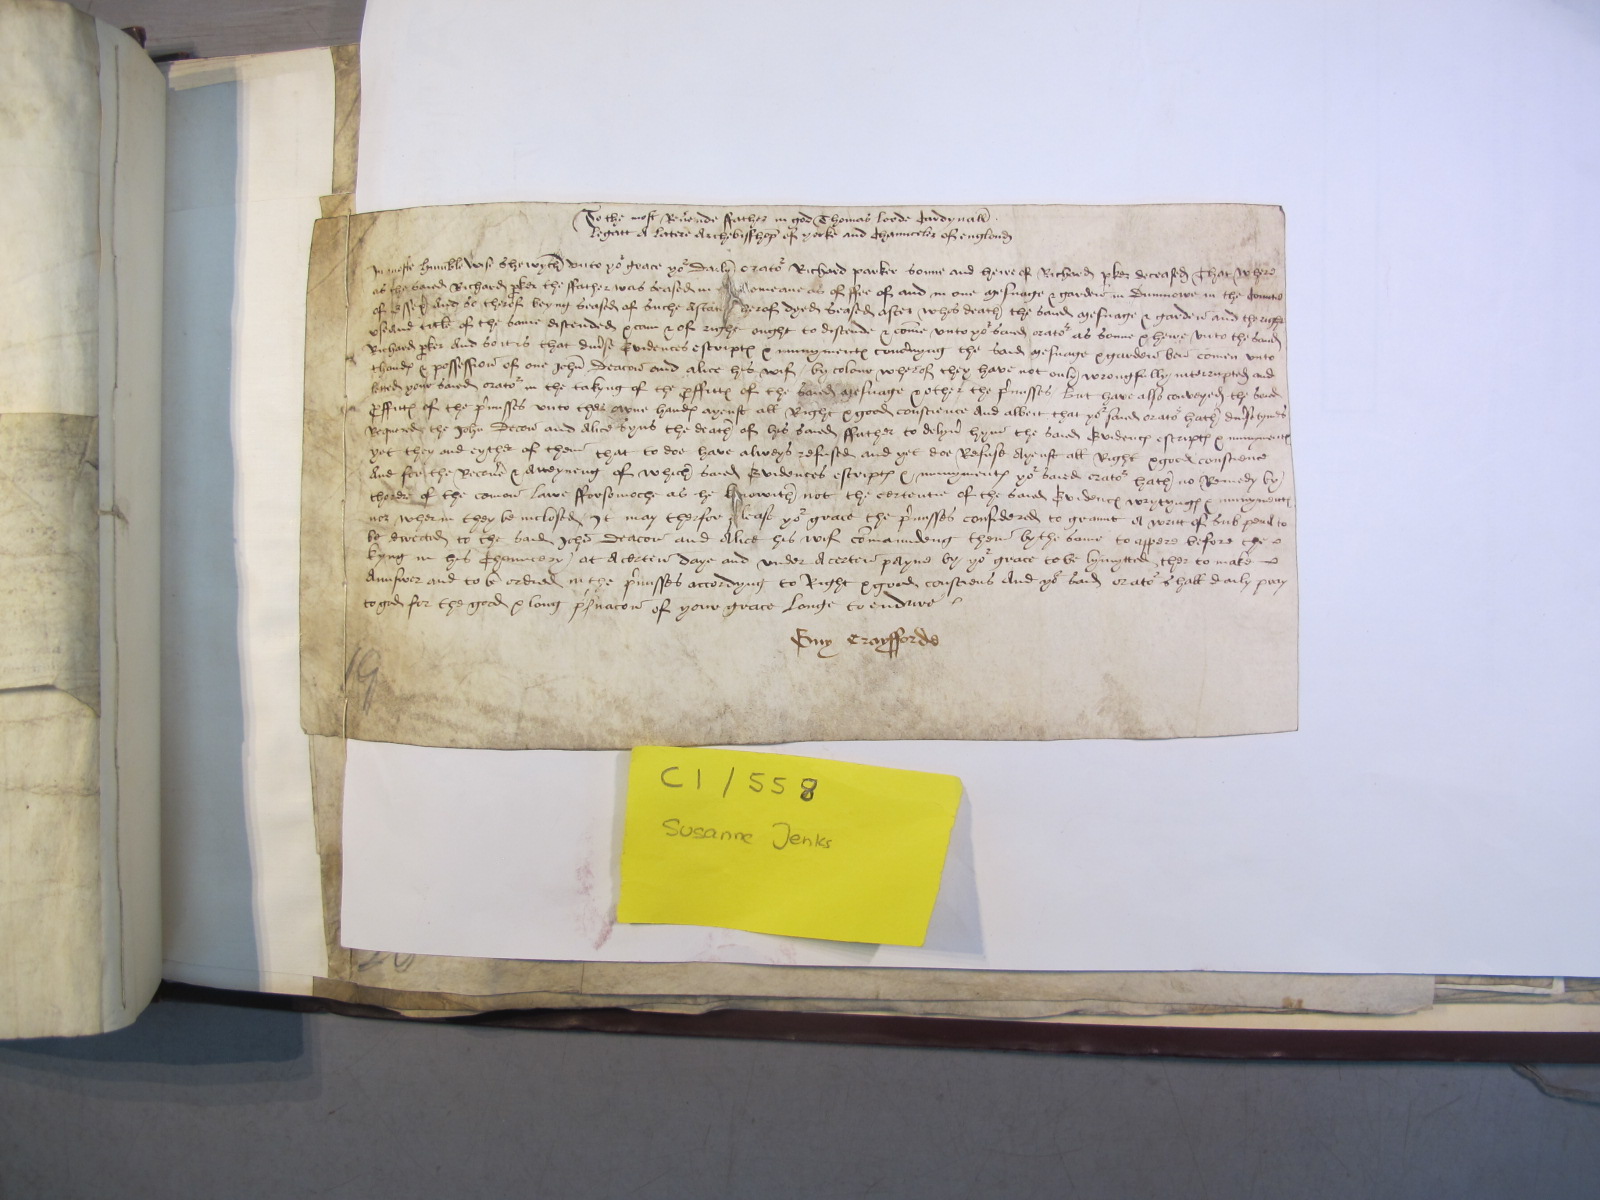 To the most Rev'ende ffather in god Thomas lorde Cardynall
legatt A latere Archebisshop of yorke and Chaunceler of englond
In moste humble wise shewyth unto yor grace yor daily orator Richard parker sonne and heire of Richard p'ker deceased That where
as the saied Richard p'ker the ffather was seased in demeane as of ffee of and in one mesuage & gardein in Dunmowe in the Countie
of essex And so therof beyng seased of suche astate therof dyed seased after whos death the saied mesuage & gardein and the right
use and title of the same discended & com & of right ought to discende & come unto yor saied orator as sonne & heire unto the saied
Richard p'ker And so it is that div'se Evidences escriptes & munymentes conc'nyng the saied mesuage & gardein ben comen unto
thandes & possession of one John Deacon and alice his wif by colour wherof they have not only wrongfully interrupted and
letted your saied orator in the takyng of the p'ffittes of the saied mesuage & other the p'misses But have also conveyed the saied
p'ffittes of the p'misses unto ther owne handes ayenst all Right & good conscience And albeit that yor saied orator hath div'se tymes
Required the John Decon and Alice syns the death of his saied ffather to delyv' hym the saied Evidences escriptes & munymentes
yet they and eyther of them that to doe have alweys refused and yet doe Refuse Ayenst all Right & good conscience
And for the Recov'e & atteynyng of which saied Evidences escriptes & munymentes yor saied orator hath no Remedy by
thordre of the comon lawe fforsomoche as he knowith not the certentie of the saied Evidences wrytynges & munymentes
nor wherin they be inclosed It may therfore please yor grace the p'misses considered to graunt A writ of sub pena to
be directed to the saied John Deacon and Alice his wif comaundeng them by the same to appere before the
kyng in his Chauncery at A certein daye and under A certein payne by yor grace to be lymytted ther to make
Aunswer and to be ordred in the p'misses accordyng to Right & good consciens And yor saied orator shall daily pray
to god for the good & long p's'vacon of your grace Longe to endure
Guy Crayfforde
19
C1/558
Susanne Jenks
20